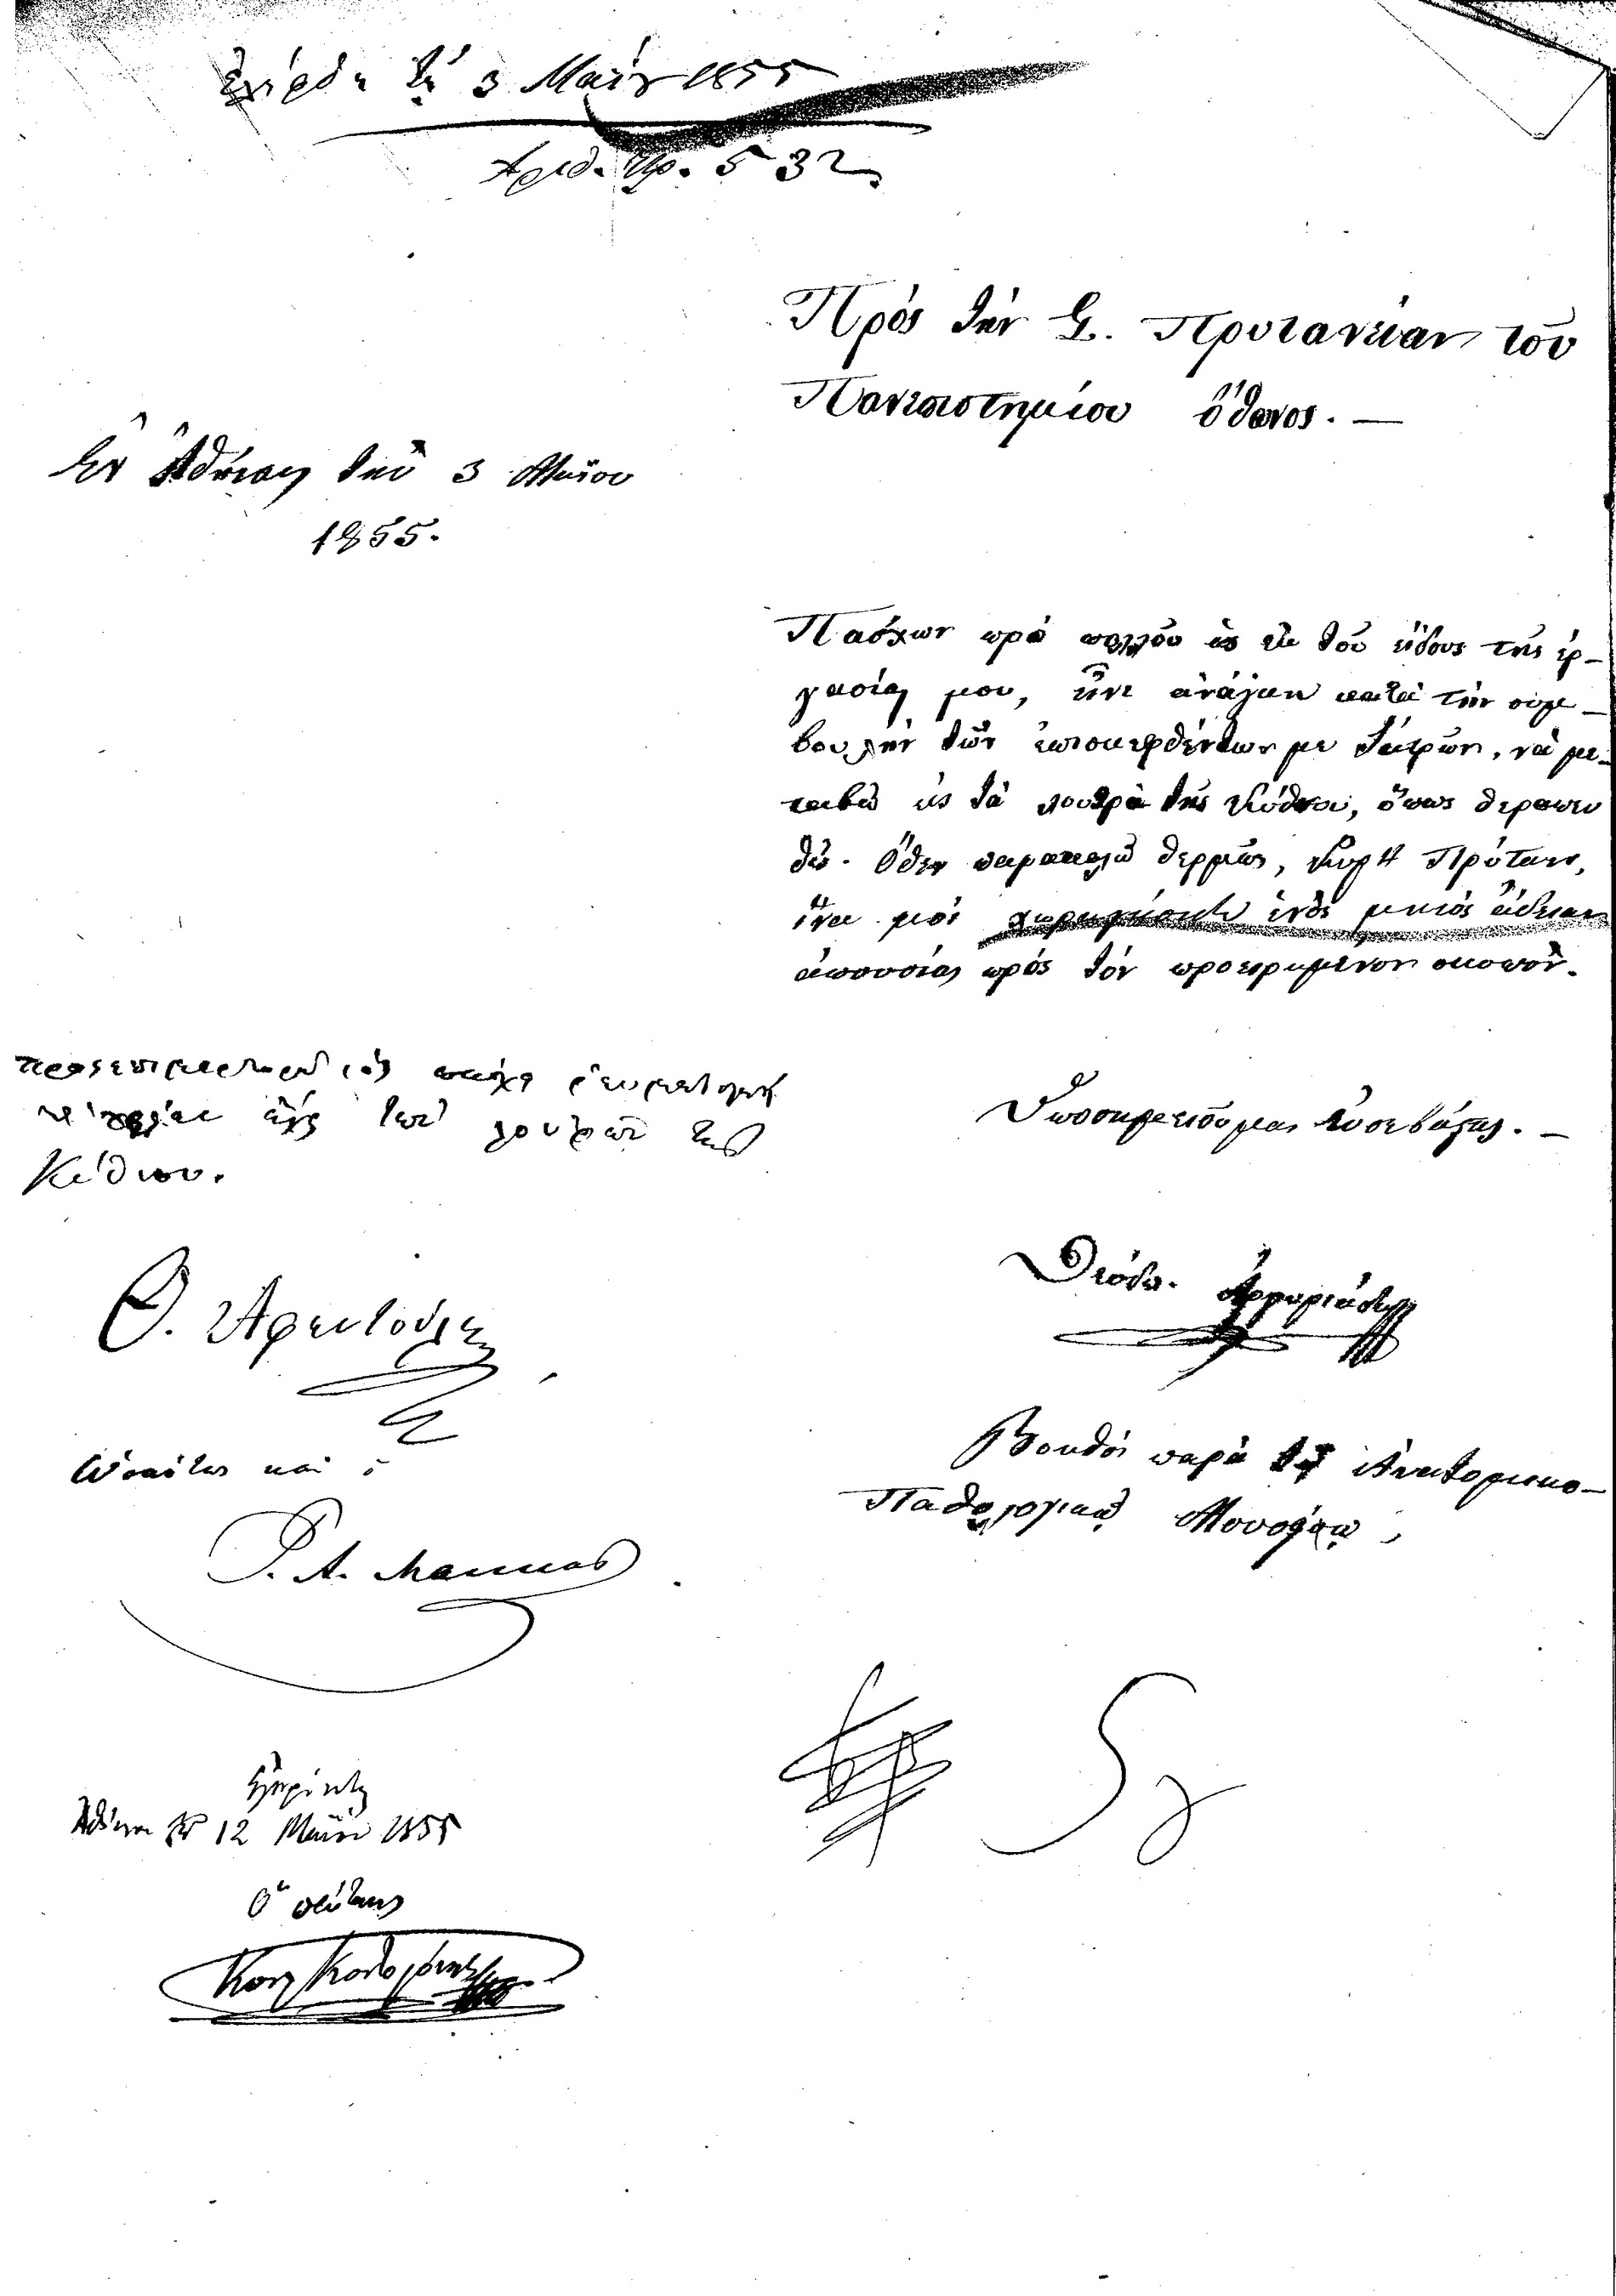 ἐλήφθη τῇ 3 Μαΐου 1855
Ἀριθ. Πρ. 532
Πρὸς τὴν Σ. Πρυτανείαν τοῦ
Πανεπιστημίου Ὄθωνος. —
Ἐν Ἀθήναις τὴν 3 Μαΐου
1855.
Πάσχων πρὸ πολλοῦ ὡς ἐκ τοῦ εἴδους τῆς ἐρ-
γασίας μου, εἶνε ἀνάγκη κατὰ τὴν συμ-
βουλὴν τῶν ἐπισκεφθέντων με ἰατρῶν, νὰ με-
ταβῶ εἰς τὰ λουτρὰ τῆς Κύθνου, ὅπως θεραπευ
θῶ. Ὅθεν παρακαλῶ θερμῶς, Κύριε Πρύτανι,
ἵνα μοὶ χορηγήσητε ἑνὸς μηνὸς ἄδειαν
ἀπουσίας πρὸς τὸν προειρημένον σκοπόν.
Ὑποσημειοῦμαι εὐσεβάστως. —
Θεόδω. Ἀργυριάδης
Βοηθὸς παρὰ τῷ Ἀνατομικο-
Παθολογικῷ Μουσείῳ
πάσχει ῥευματισμὸν
τῶν λουτρῶν τῆς
Κύθνου.
Θ. Ἀφεντούλης
Ὡσαύτως καὶ ὁ
Ἐγκρίνεται
Ἀθῆναι τῇ 12 Μαΐου 1855
Ὁ πρύτανις